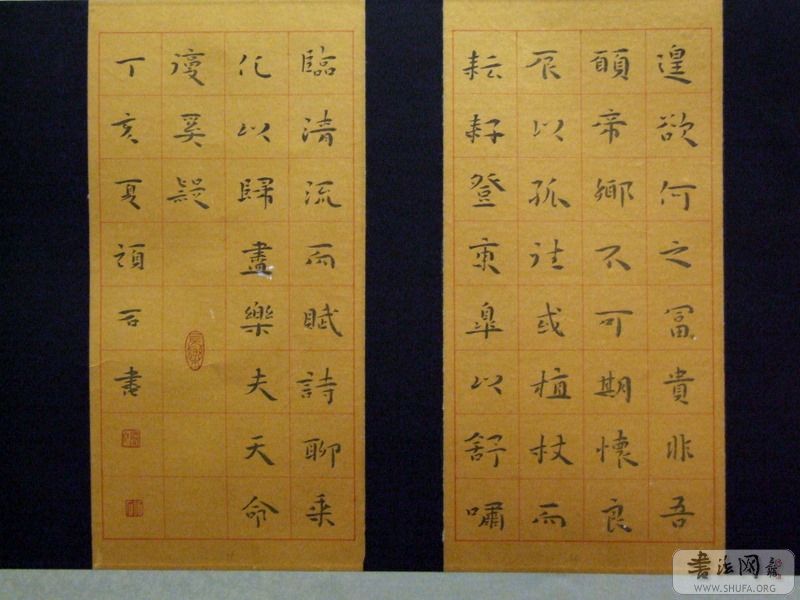 遑欲何之冨貴非吾
願帝鄉不可期懷良
辰以孤往或植杖而
耘耔登東皐以舒嘯
臨清流而賦詩聊乘
化以歸盡樂夫天命
復奚疑
丁亥夏頑石書
書法网
WWW.SHUFA.ORG